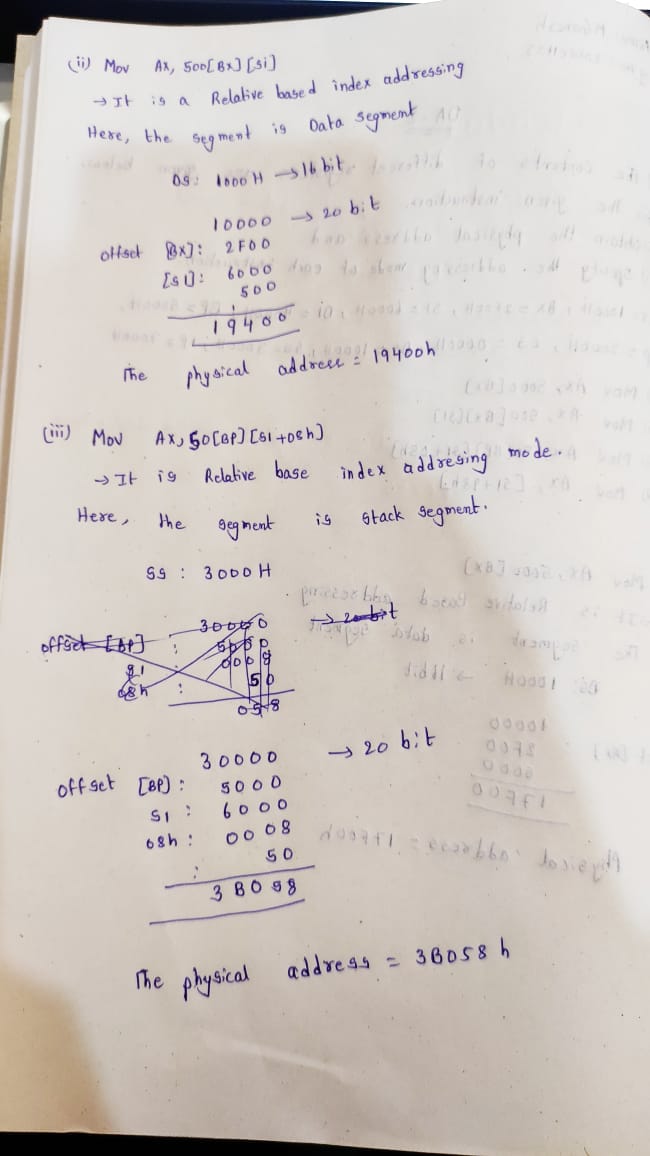 (ii) Mov AX, 500[BX] [SI]
→ It is a Relative based index addressing
Here, the segment is Data segment
DS: 1000 H → 16 bit
10000 → 20 bit
offset [BX]: 2F00
[SI]: 6000
500
19400
The physical address = 19400h
(iii) Mov AX, 50[BP] [SI+08h]
→ It is Relative base index addresing mode.
Here, the segment is stack segment.
SS : 3000 H
30000 → 20 bit
offset [BP] : 5000
SI : 0008
08h : 50
058
30000 → 20 bit
offset [BP] : 5000
SI : 6000
08h : 0008
: 50
3B058
The physical address = 3B058 h